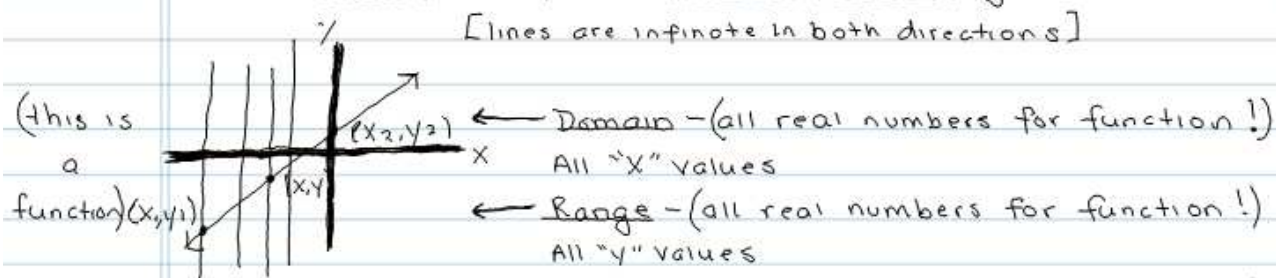 [lines are infinote in both directions]
y
(this is
a
function)
(x2,y2)
x
(x,y
(x,y1)
← Domain - (all real numbers for function!)
All "X" values
← Range - (all real numbers for function!)
All "y" values